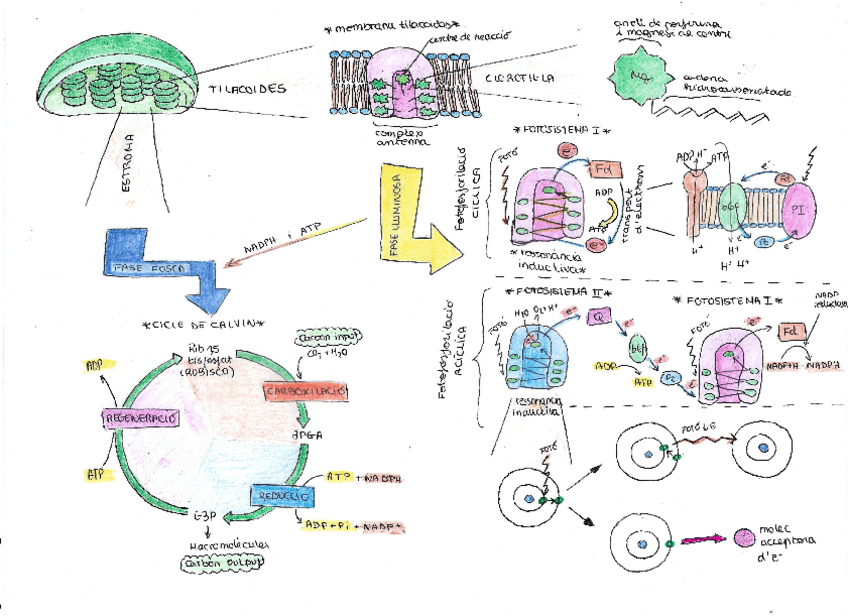 TILACOIDES
ESTROMA
*membrana tilacoides*
centre de reacció
complexe
antenna
CLOROFIL·LA
anell de porfirina
i magnesi al centre
Mg
cadena
hidrocarbonatada
FASE LLUMINOSA
NADPH i ATP
FASE FOSCA
Fotofosforilació
CÍCLICA
*FOTOSISTEMA I*
FOTÓ
e-
Fd
ADP
ATP
e-
transport
d'electrons
*ressonància
inductiva*
ADP H+
ATP
e-
Fd
b6f
PI
Pc
e-
H+
H+ H+
Fotofosforilació
ACÍCLICA
*FOTOSISTEMA II*
FOTÓ
H2O O2+H+
e-
Q
e-
b6f
e-
ADP
ATP
Pc
e-
ressonància
inductiva
FOTOSISTEMA I*
FOTÓ
e-
Fd
NADP
reductasa
NADP+H
NADPH
*CICLE DE CALVIN*
Rib 1,5
bisfosfat
(RUBISCO)
Carbon input
CO2 + H2O
CARBOXILACIÓ
3PGA
REDUCCIÓ
ATP + NADPH
ADP + Pi + NADP+
G3P
Macromolècules
Carbon Output
REGENERACIÓ
ADP
ATP
FOTÓ
FOTÓ
molec
acceptora
d'e-